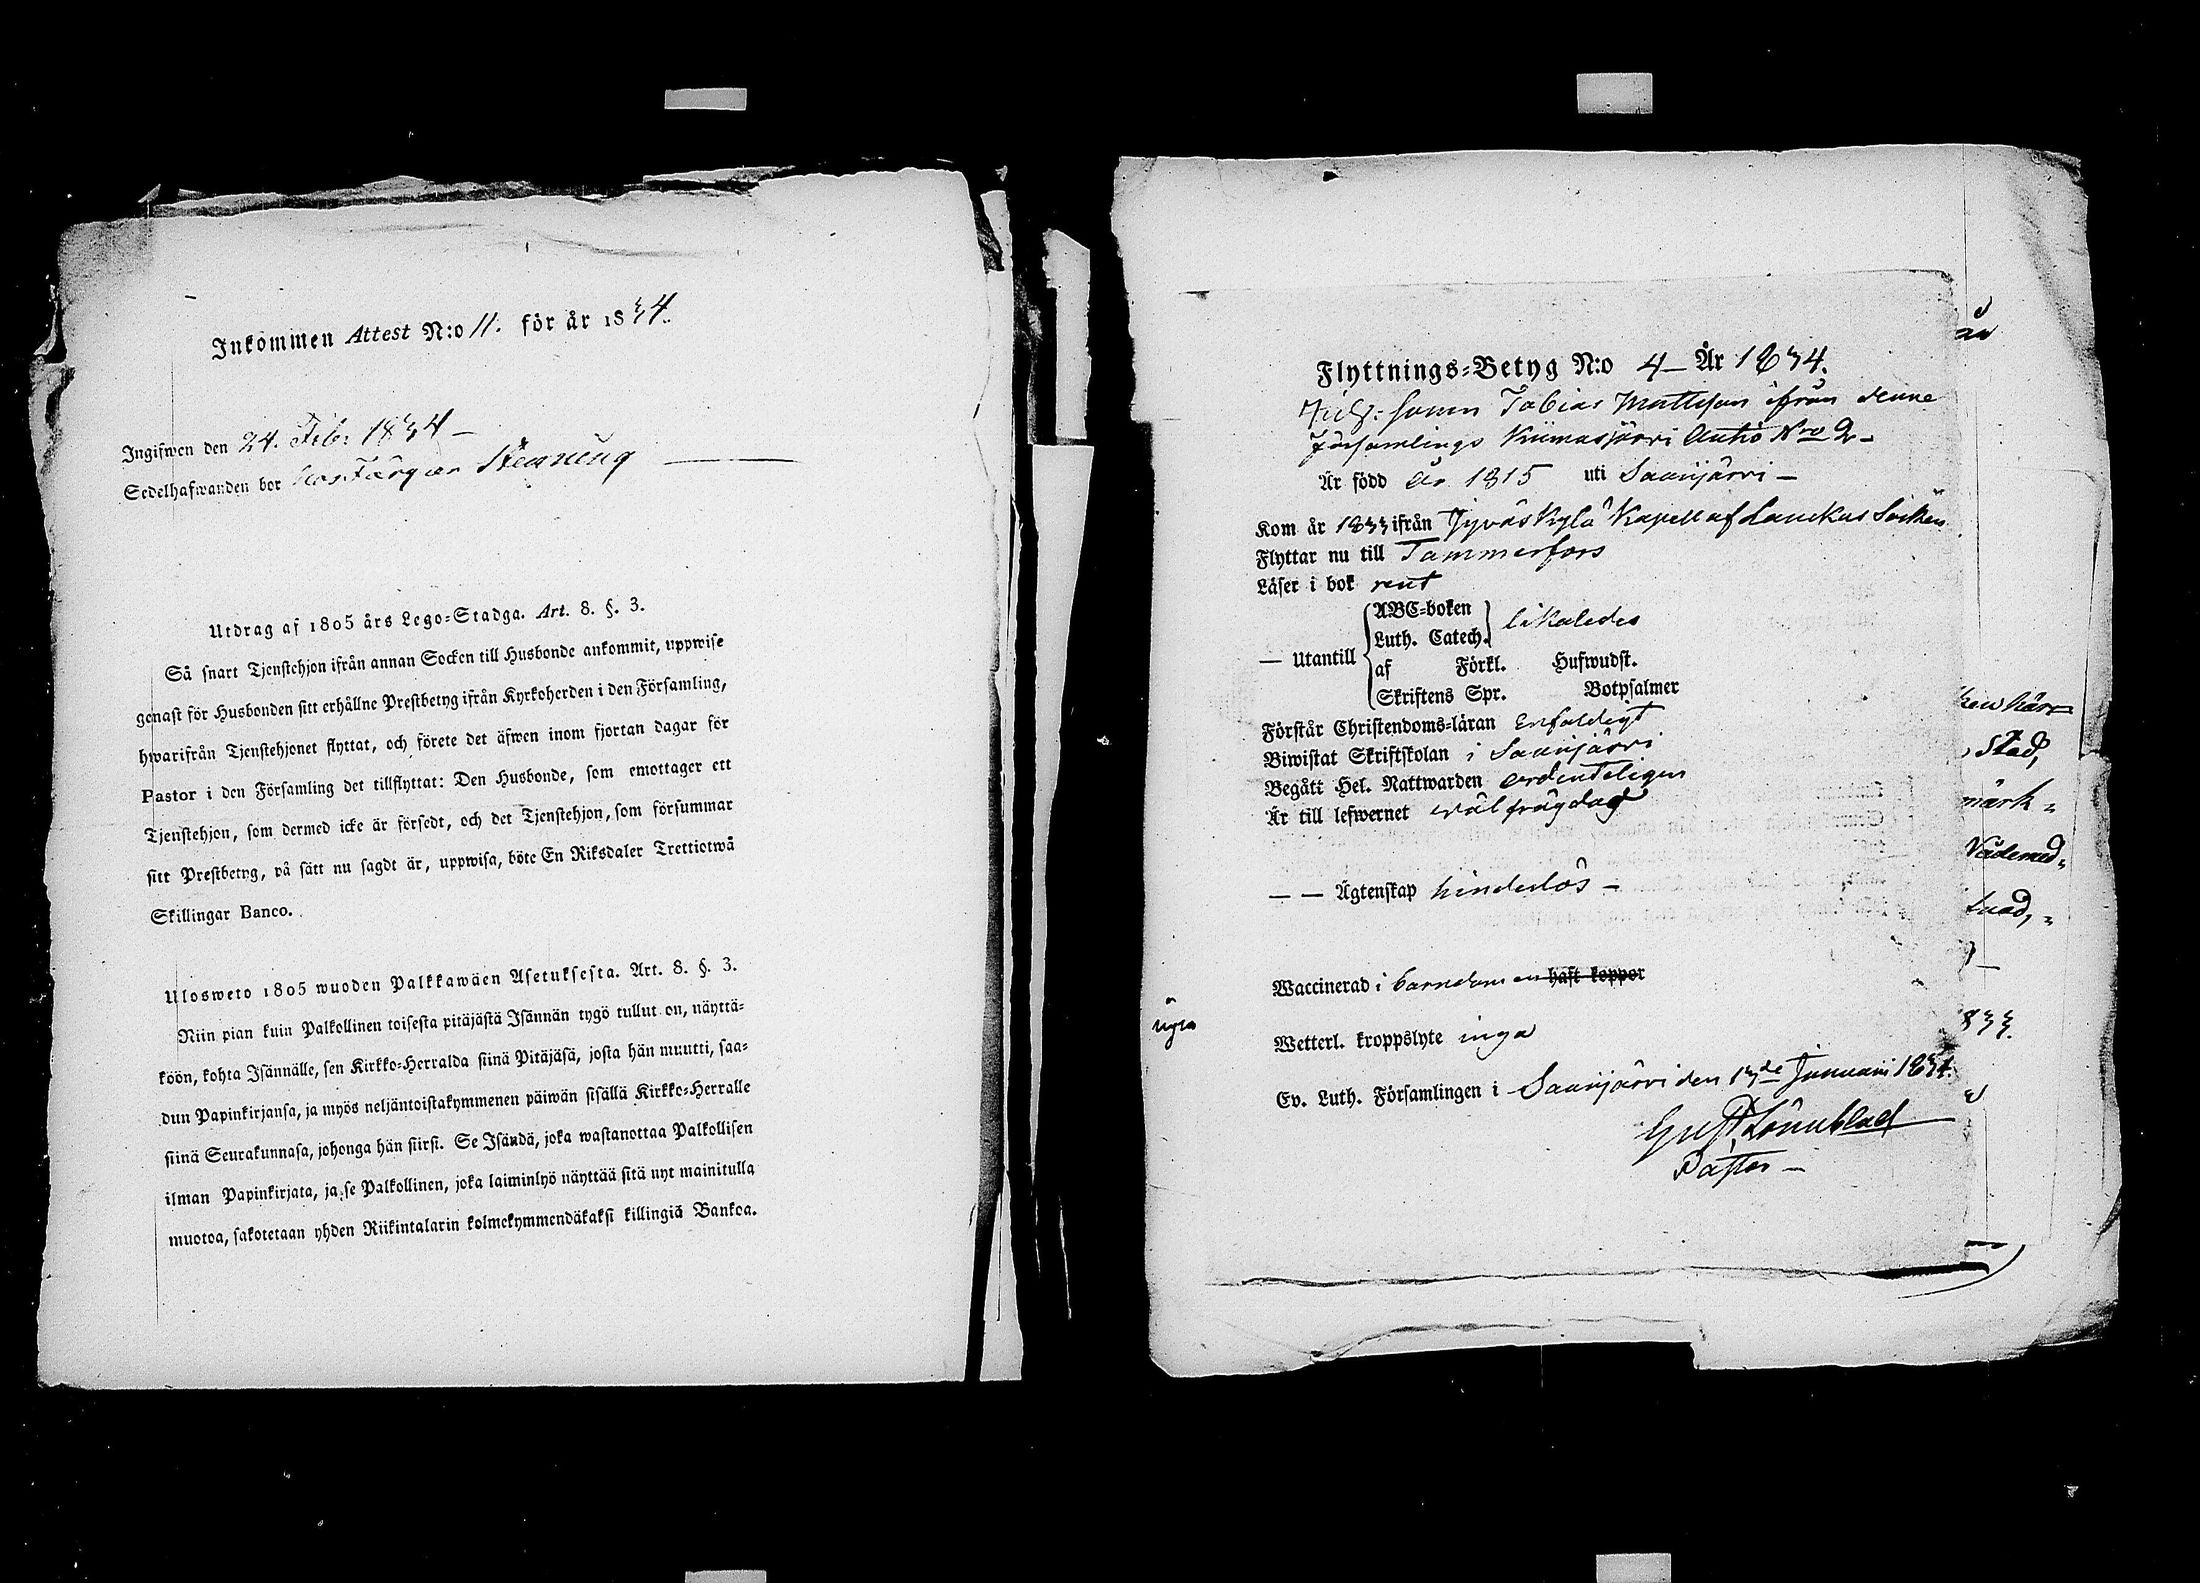 Inkommen Attest N:o 11. för år 1834.
Ingifwen den 24. Febr 1834 —
Sedelhafwanden bor hos Färgaren
Utdrag af 1805 års Lego-Stadga. Art. 8. §. 3.
Så snart Tjenstehjon ifrån annan Socken till Husbonde ankommit, uppwise
genast för Husbonden sitt erhållne Prestbetyg ifrån Kyrkoherden i den Församling,
hwarifrån Tjenstehjonet flyttat, och förete det äfwen inom fjortan dagar för
Pastor i den Församling det tillflyttat: Den Husbonde, som emottager ett
Tjenstehjon, som dermed icke är försedt, och det Tjenstehjon, som försummar
sitt Prestbetyg, på sätt nu sagdt är, uppwisa, böte En Riksdaler Trettiotwå
Skillingar Banco.
Ulosweto 1805 wuoden Palkkawäen Asetuksesta. Art. 8. §. 3.
Niin pian kuin Palkollinen toisesta pitäjästä Isännän tygö tullut on, näyttä-
köön, kohta Isännälle, sen Kirkko-Herralda siinä Pitäjäsä, josta hän muutti, saa-
dun Papinkirjansa, ja myös neljäntoistakymmenen päiwän sisällä Kirkko-Herralle
siinä Seurakunnasa, johonga hän siirsi. Se Isändä, joka wastanottaa Palkollisen
ilman Papinkirjata, ja se Palkollinen, joka laiminlyö näyttää sitä nyt mainitulla
muotoa, sakotetaan yhden Riikintalarin kolmekymmendäkaksi killingiä Bankoa.
Flyttnings-Betyg N:o 4 — År 1834.
sonen Tobias Mattsson ifrån denne
församlings Kiimasjärvi Autio Nro 2 —
Är född år 1815 uti Saarijärvi —
Kom år 1833 ifrån Jyväskylä Kapell af Laukas Socken
Flyttar nu till Tammerfors
Läser i bok rent
— Utantill
ABC-boken
Luth. Catech. likaledes
af Förkl. Hufwudst.
Skriftens Spr. Botpsalmer
Förstår Christendoms-läran enfaldigt
Biwistat Skriftskolan i Saarijärvi
Begåti Hel. Nattwarden ordenteligen
Är till lefwernet wälfrägdad
— — Ägtenskap hinderlös —
Waccinerad i barndomen haft koppor
Wetterl. kroppslyte inga
Ev. Luth. Församlingen i Saarijärvi den 13de Januari 1834.
Gust. Lönnblad
Pastor —
Stad,
märk =
Vademed =
833.